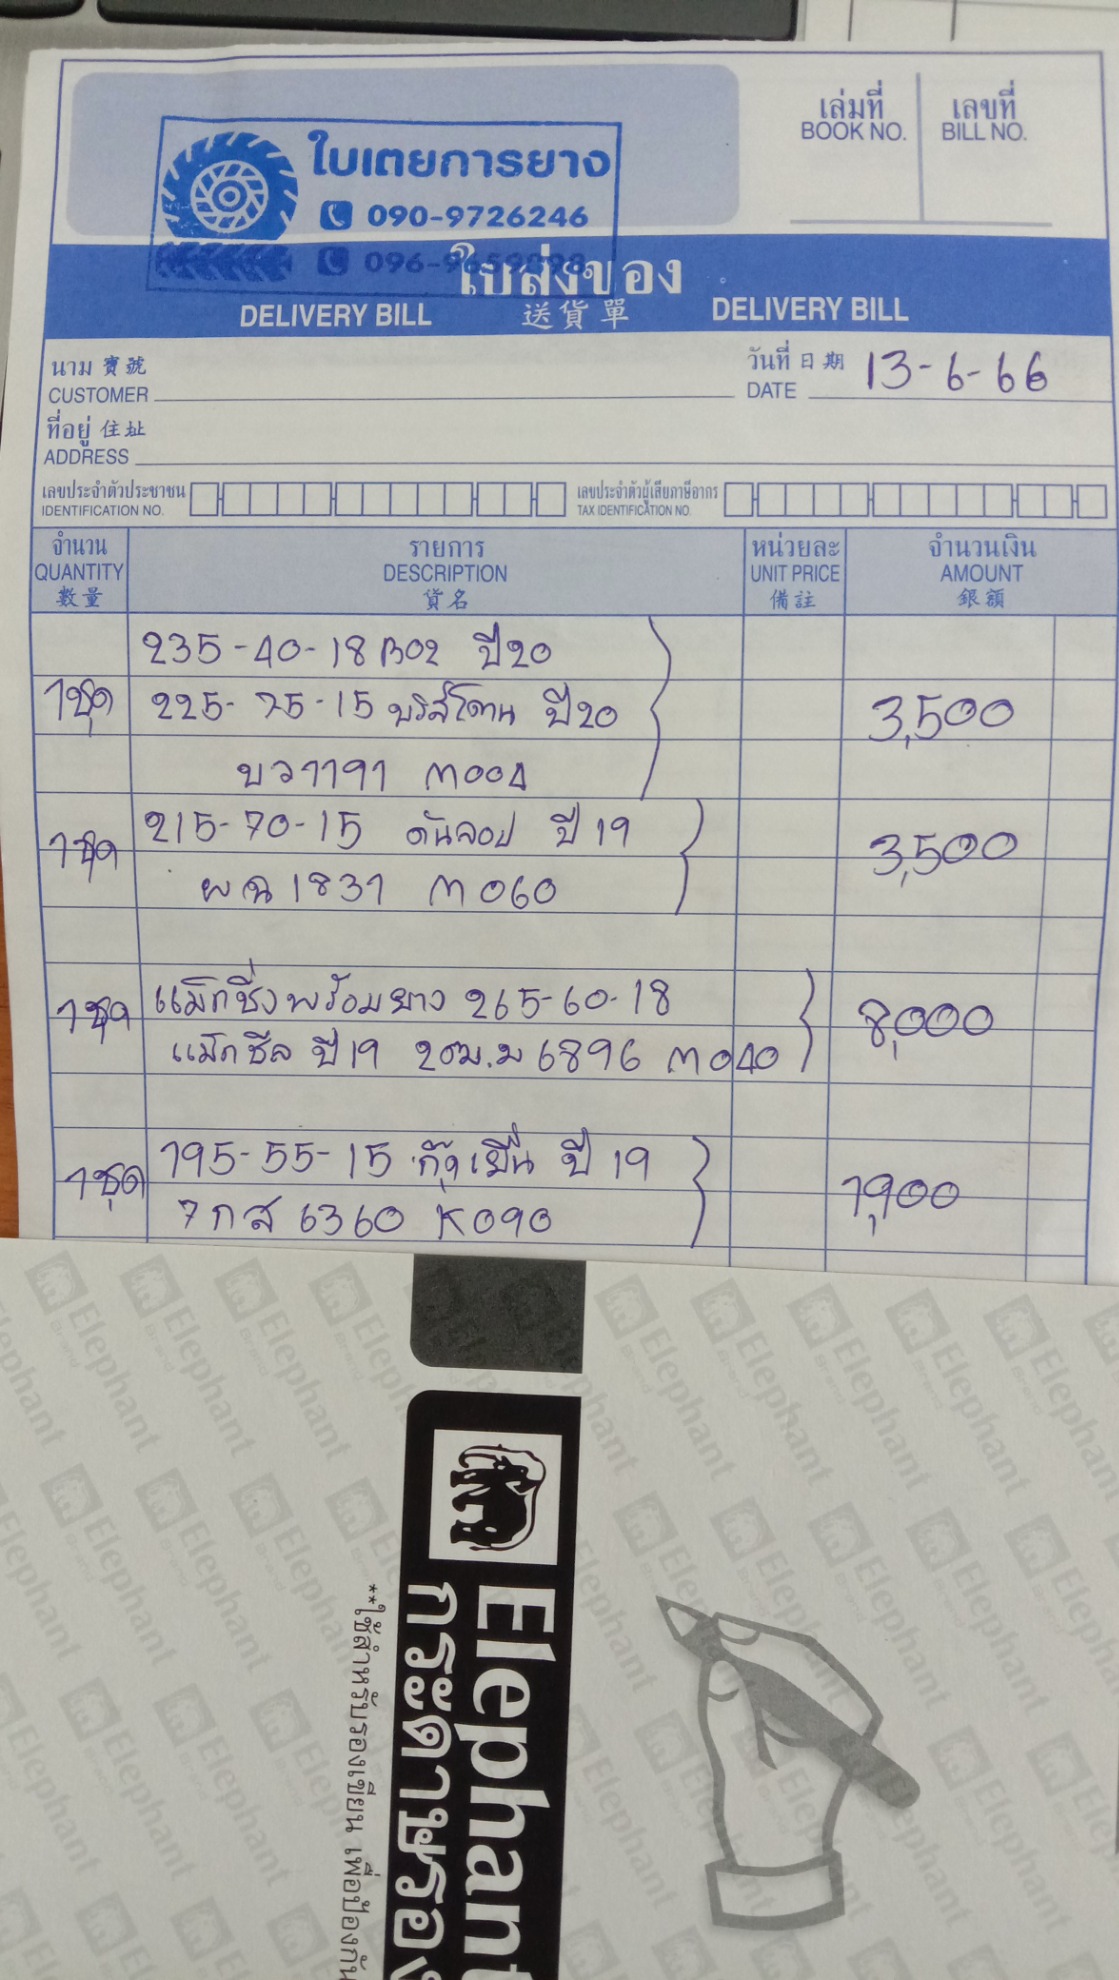 เล่มที่ เลขที่
BOOK NO. BILL NO.
ใบเตยการยาง
090-9726246
096-
ใบส่งของ
DELIVERY BILL 送貨單 DELIVERY BILL
นาม 寶號 วันที่ 日期 13-6-66
CUSTOMER DATE
ที่อยู่ 住址
ADDRESS
เลขประจำตัวประชาชน เลขประจำตัวผู้เสียภาษีอากร
IDENTIFICATION NO. TAX IDENTIFICATION NO.
จำนวน รายการ หน่วยละ จำนวนเงิน
QUANTITY DESCRIPTION UNIT PRICE AMOUNT
數量 貨名 備註 銀額
235-40-18 B02 ปี20
1ชุด 225-75-15 บริสโตน ปี20 3,500
บว1191 M004
1ชุด 215-70-15 ดันลอป ปี 19 3,500
ผฉ 1831 M060
1ชุด แม็กซิ่งพร้อมยาง 265-60-18 8,000
แม็กซีส ปี19 2ฒม.ม 6896 M040
1ชุด 195-55-15 กู๊ดเยียร์ ปี 19 1,900
7กส 6360 K090
Elephant
กระดาษรอง
**ใช้สำหรับรองเขียน เพื่อป้องกัน